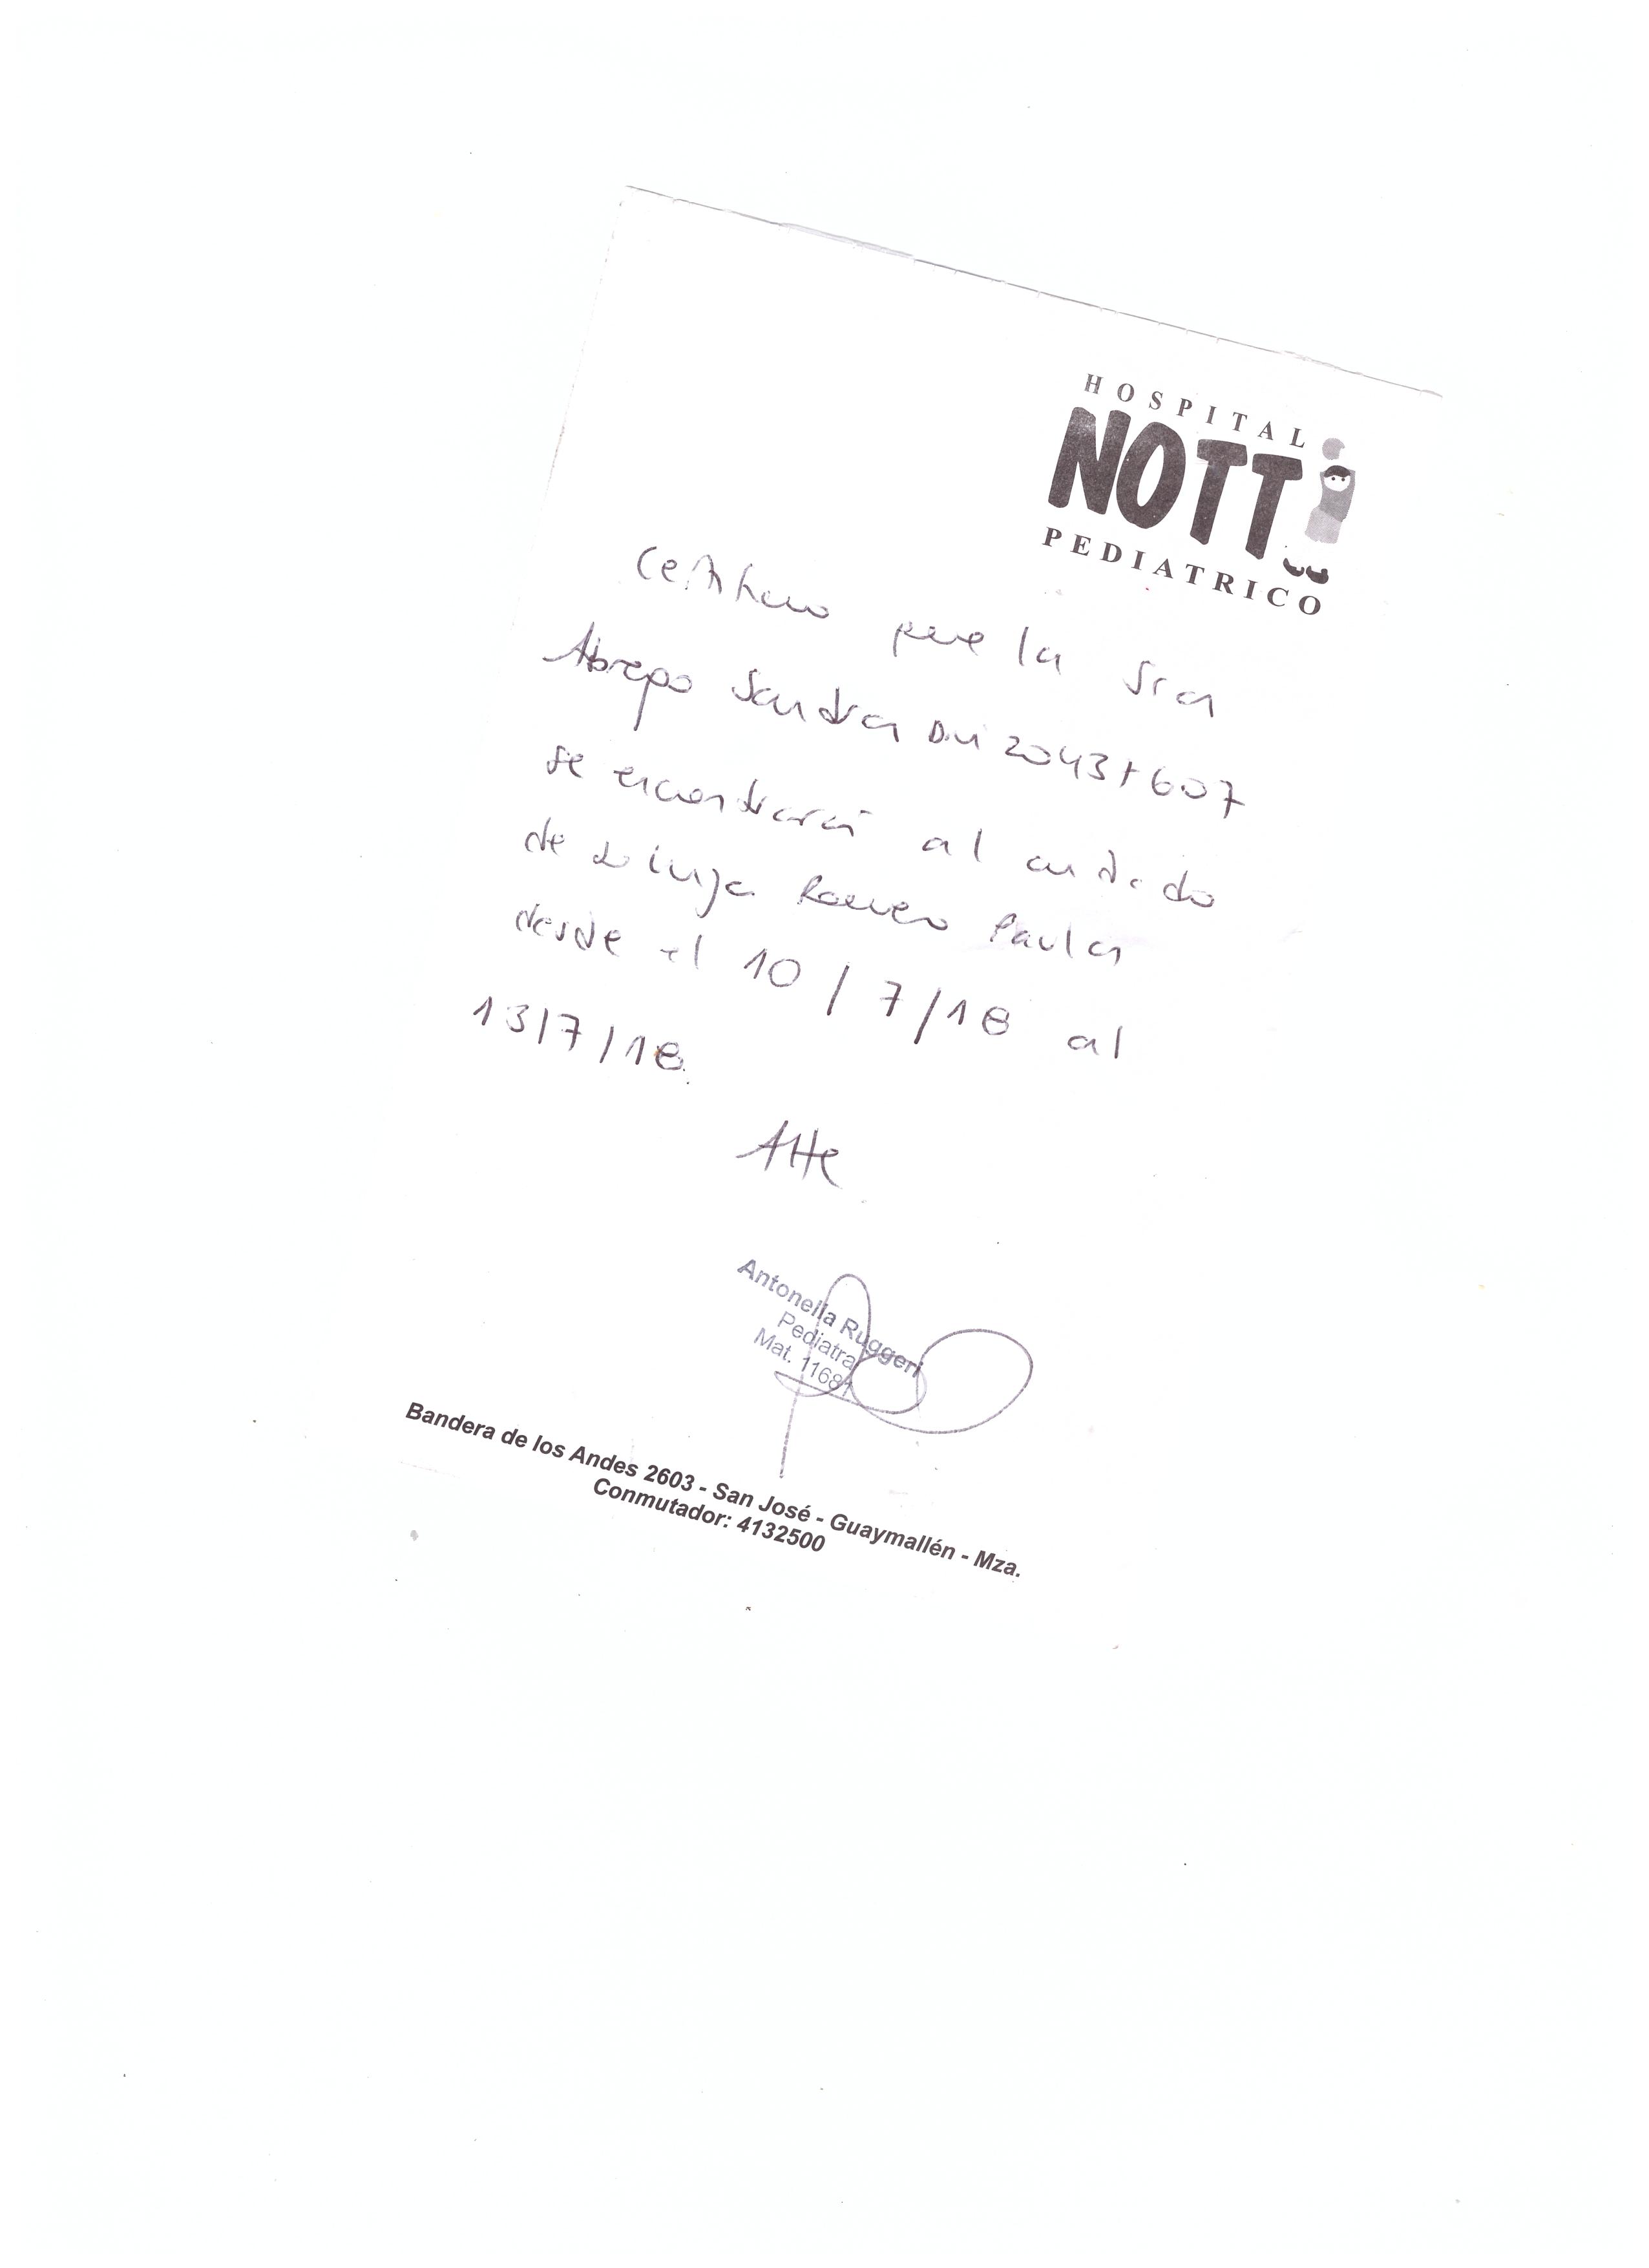 HOSPITAL
NOTTI
PEDIATRICO
Certifico que la Sra
Abrego Sandra DNI 20437607
se encontrará al cuidado
de Romero Paula
desde el 10/7/18 al
13/7/18.
Atte
Antonella Ruggeri
Pediatra
Mat. 11681
Bandera de los Andes 2603 - San José - Guaymallén - Mza.
Conmutador: 4132500